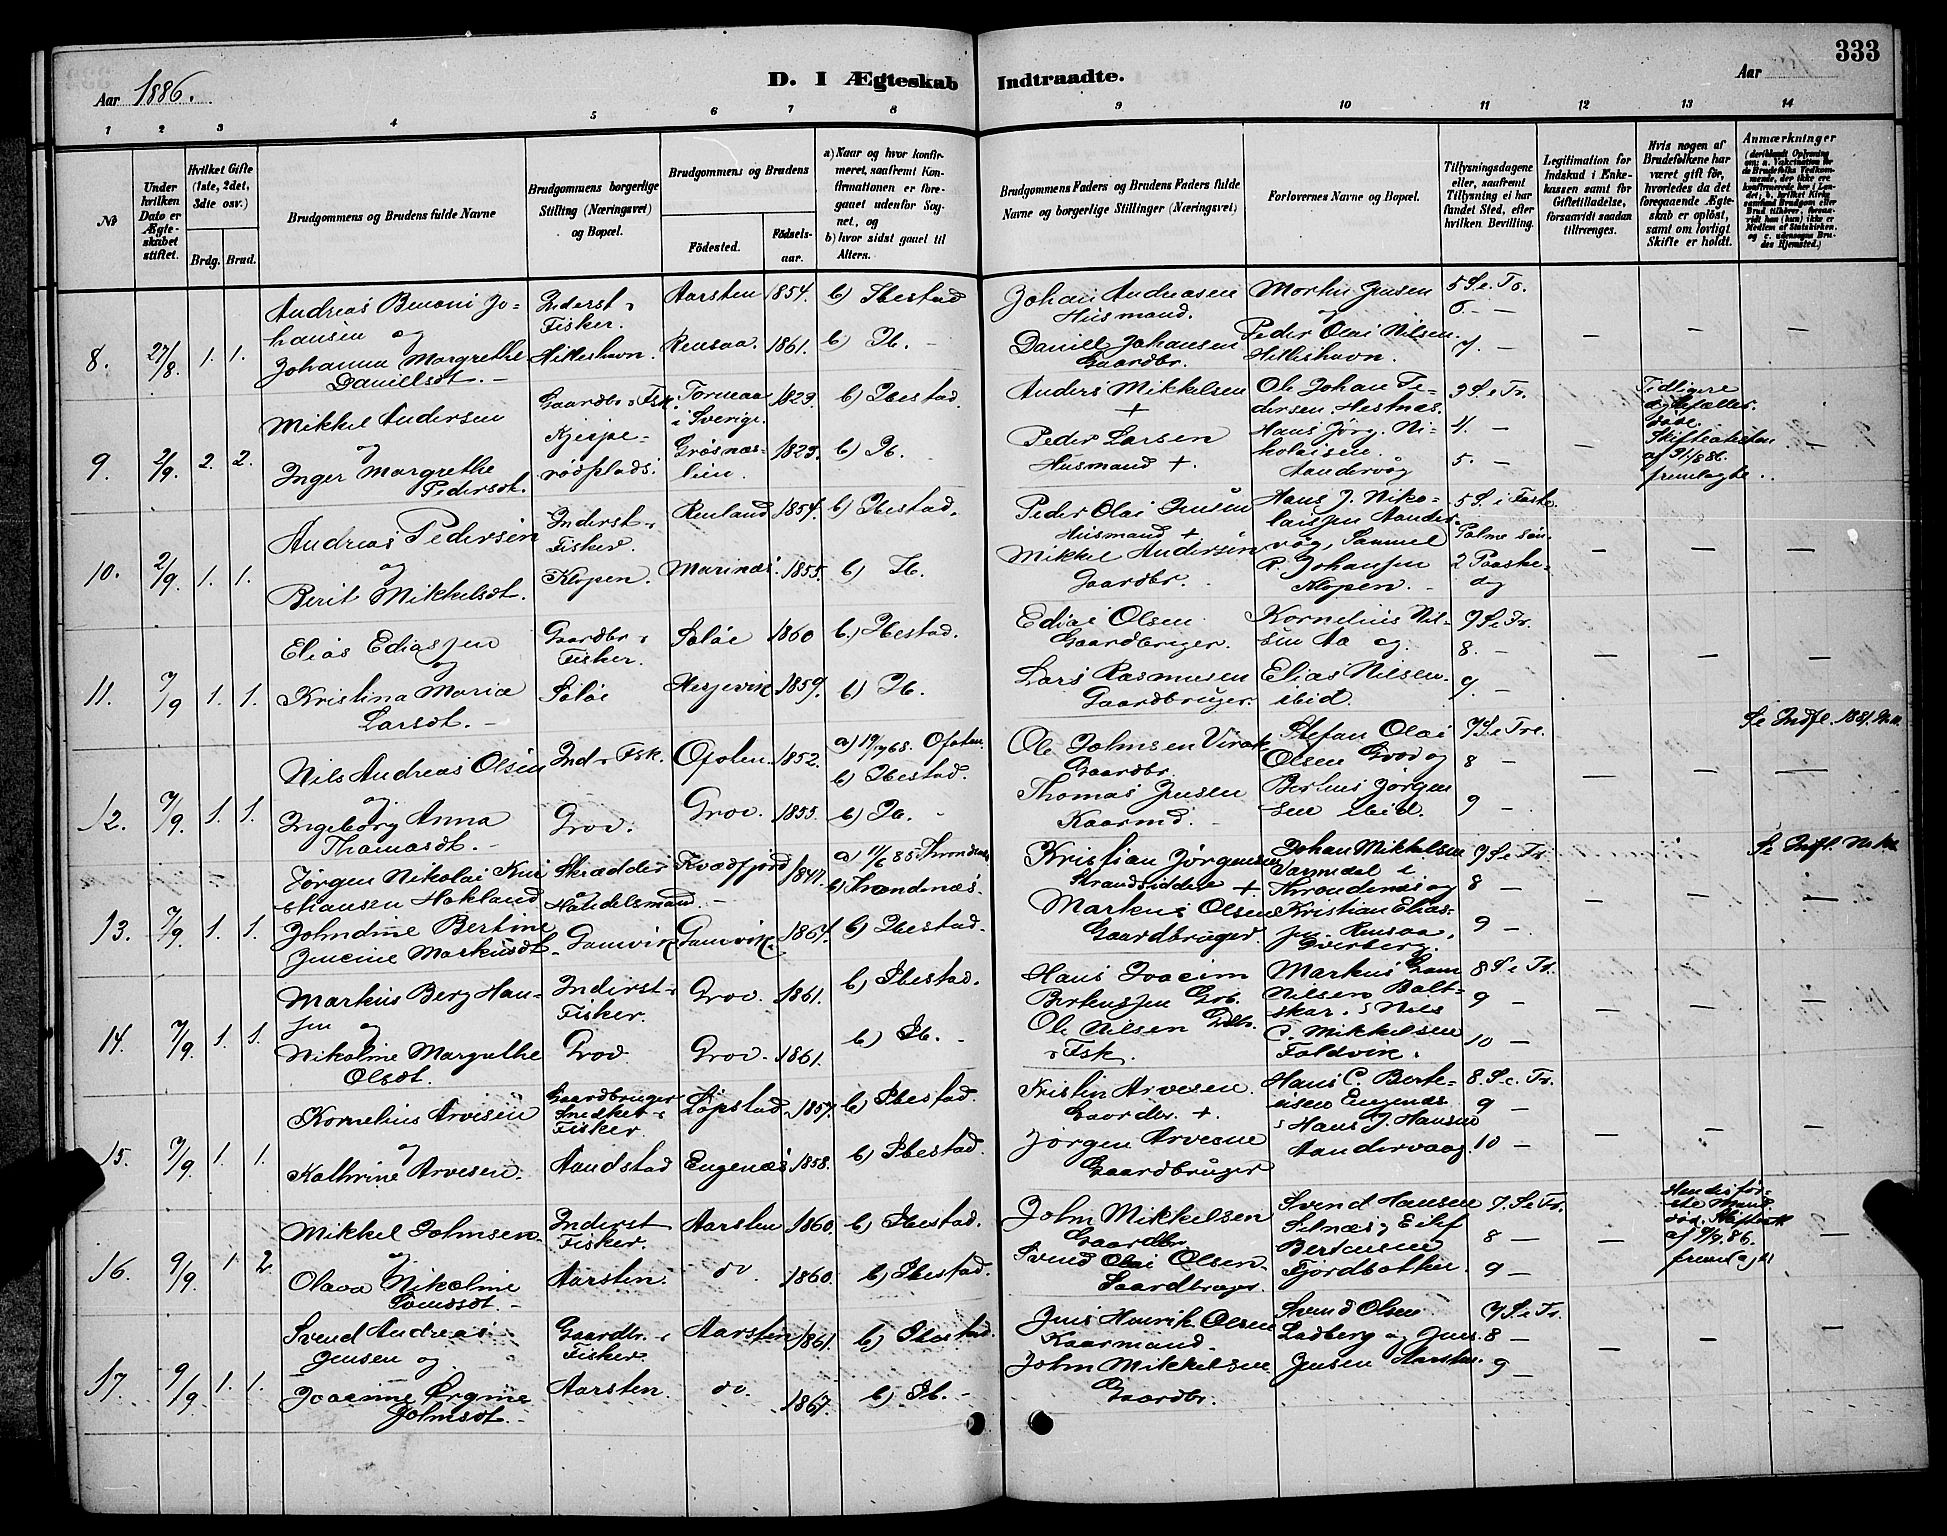 Aar 1886.
D. I Ægteskab Indtraadte.
Aar
333
1 2 3 4 5 6 7 8 9 10 11 12 13 14
№
Under hvilken Dato er Ægteskabet stiftet.
Hvilket Gifte (1ste, 2det, 3dte osv.)
Brdg. Brud.
Brudgommens og Brudens fulde Navne
Brudgommens borgerlige Stilling (Næringsvei) og Bopæl.
Brudgommens og Brudens
Fødested.
Fødselsaar.
a) Naar og hvor konfirmeret, saafremt Konfirmationen er foregaaet udenfor Sognet, og
b) hvor sidst gaaet til Alters.
Brudgommens Faders og Brudens Faders fulde Navne og borgerlige Stillinger (Næringsvei)
Forlovernes Navne og Bopæl.
Tillysningsdagene eller, saafremt Tillysning ei har fundet Sted, efter hvilken Bevilling.
Legitimation for Indskud i Enkekassen samt for Giftetilladelse, forsaavidt saadan tiltrænges.
Hvis nogen af Brudefolkene har været gift før, hvorledes da det foregaaende Ægteskab er opløst, samt om lovligt Skifte er holdt.
Anmærkninger
8. 27/8. 1. 1.
Andreas Benoni Johansen og
Johanna Margrethe Danielsdt.
Inderst & Fisker. Hilleshavn.
Aarsten 1854. b) Ibestad
Rensaa. 1861. b) Ib.
Johan Andreasen Husmand.
Daniell Johansen Gaardbr.
Morten Jensen
Peder Olai Nilsen Hilleshavn.
5 S. e Tr.
6. —
7. —
9. 2/9. 2. 2.
Mikkel Andersen
og
Inger Margrethe Pedersdt.
Gaardbr & Fsk.
Torneaa i Sverige. 1823. b) Ibestad.
Grøsnæs- 1823. b) Ib.
Anders Mikkelsen +
Peder Larsen Husmand +.
Ole Johan Pedersen. Hestnæs.
Hans Jørg. Nikolaisen. Aandervåg
3 S. e Tr.
4. —
5. —
Tidligere ægtefæller døde. Skifteattester af 31/8 86. fremlagte.
10. 2/9. 1. 1.
Andreas Pedersen
og
Berit Mikkelsdt.
Inderst & Fisker. Klopen.
Renland 1854. b) Ibestad.
Marinæs 1855. b) Ib.
Peder Olai Jensen Husmand +
Mikkel Andersen Gaardbr.
Hans J. Nikolaisen Aandervåg, Samuel P. Johansen Klopen.
5 S. i Faste.
Palme søn.
2 Paaskedag
11. 7/9 1. 1.
Elias Ediassen
og
Kristina Maria Larsdt.
Gaardbr & Fisker. Søløe
Søløe 1860 b.) Ibestad.
1859. b) Ib.
Edias Olsen Gaardbruger.
Lars Rasmusen Gaardbruger.
Kornelius Nilsen Aa og
Elias Nilsen. ibid.
7 S. e Tr.
8. —
9. —
12. 7/9. 1. 1.
Nils Andreas Olsen
og
Ingeborg Anna Thomasdt.
Ind & Fsk. Grov.
Ofoten 1852. a) 19/7 68. Ofoten. b) Ibestad.
Grov. 1855. b) Ib.
Ole Johnsen Virak Gaardbr.
Thomas Jensen Kaarmd.
Stefan Olai Olsen Grov og
Berteus Jørgensen ibid.
7 S. e Tre.
8 —
9 —
Se Indfl. 1881.
13. 7/9 1. 1.
Jørgen Nikolai Kristiansen Hokland
Johndine Bertine Jensine Markusdt.
Skrædder & Handelsmand. Gamvik
Kvædfjord 1847. a) 11/6 85: Trondenæs b) Trondenæs.
Gamvik. 1864. b) Ibestad.
Kristian Jørgensen Strandsiddere +
Markus Olsen Gaardbruger.
Johan Mikkelsen i Trondenæs og
Kristian Eliassen. Rensaa,
7 S e Tr.
8 —
9 —
14. 7/9 1. 1.
Markus Berg Hansen og
Nikoline Margrethe Olsdt.
Inderst & Fisker. Grov
Grov. 1861. b) Ibestad.
Grov. 1861. b) Ib.
Hans Joacim Berteussen Grb.
Ole Nilsen Grdbr. & Fsk.
Markus Gam Nilsen Baltskar. & Nils C. Mikkelsen Foldvik.
8 S. e Tr.
9 —
10 —
15. 7/9 1. 1.
Kornelius Arvesen
og
Kathrine Arvesen.
Gaardbruger Snedker & Fisker. Aandstad
Løpstad 1857. b) Ibestad.
Engenæs 1858. b) Ibestad.
Kristen Arvesen Gaardbr. +.
Jørgen Arvesen Gaardbruger
Hans C. Berteusen Engenæs & Hans J. Hansen Aandervaag
8. S. e. Tr.
9 —
10 —
16. 9/9 1 2.
Mikkel Johnsen
og
Olava Nikoline Svendsdt.
Inderst Fisker. Aarsten.
Aarsten 1860. b) Ibestad.
do. 1860. b) Ibestad.
John Mikkelsen Gaardbr
Svend Olai Olsen Gaardbruger
Svend Hansen Selnæs, Eilif Bertensen Fjordbotten.
7. S. e Tr.
8 —
9 —
Hendes første Mand død. Skifteatt af 9/9 86. fremlagt
17. 9/9 1. 1.
Svend Andreas Jensen og
Joacine Ørgine Johnsdt.
Gaardbr. & Fisker Aarsten.
Aarsten 1861. b) Ibestad.
do. 1867. b) Ib.
Jens Henrik Olsen Kaarmand.
John Mikkelsen Gaardbr.
Svend Olsen Ladberg og Jens Jensen Aarsten.
7 S. e Tr.
8 —
9 —